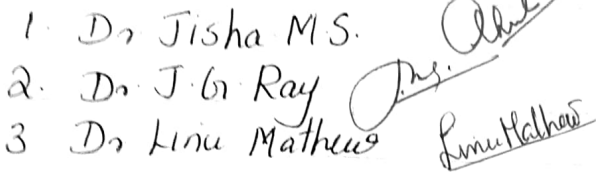 1. Dr Jisha M.S.
2. Dr. J.G Ray
3 Dr Linu Mathew LinuMathew